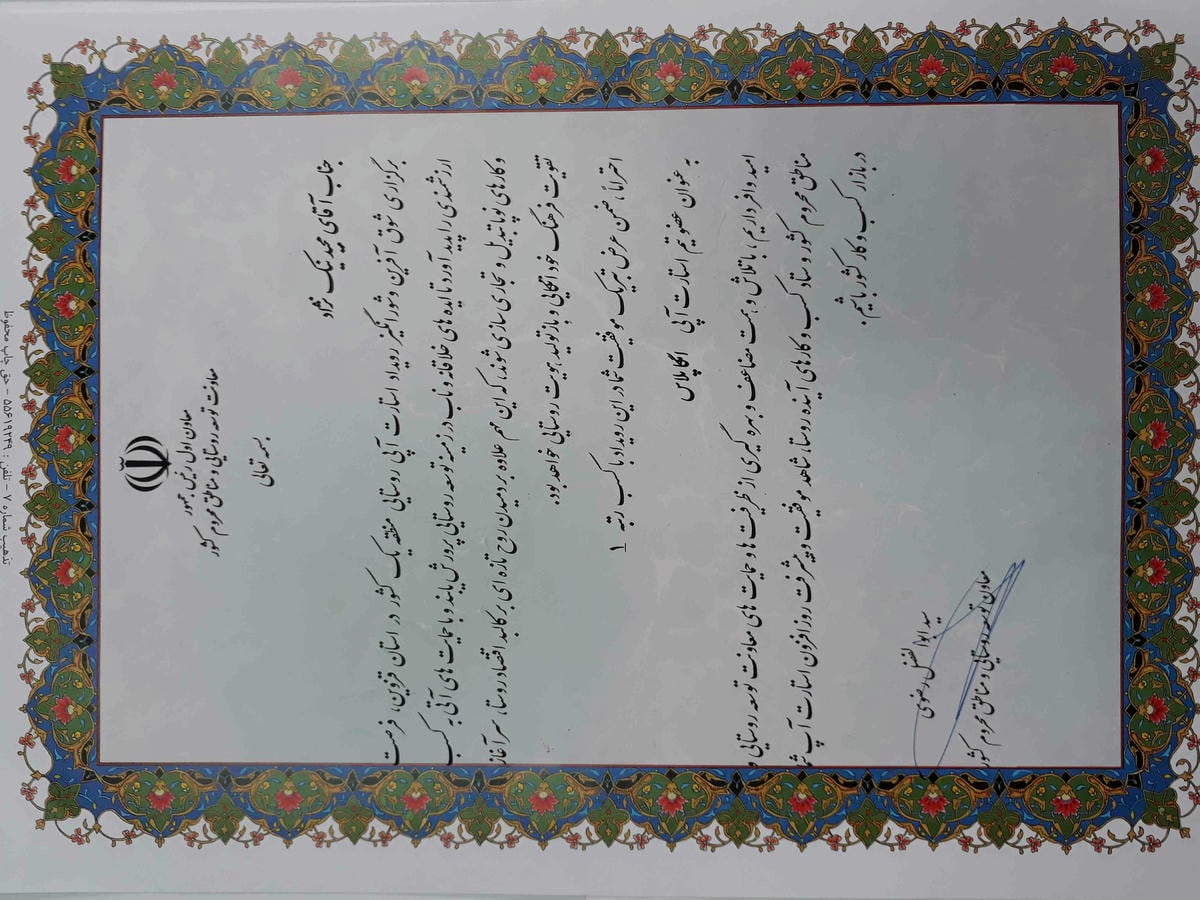 معاون اول رئیس جمهور
معاونت توسعه روستایی و مناطق محروم کشور
بسمه تعالی
جناب آقای مجید نیک نژاد
برگزاری شوق آفرین و شورانگیز رویداد استارت آپی روستایی منطقه یک کشور در استان قزوین، فرصت
ارزشمندی را پدید آورد تا ایده های خلاقانه و ناب در زمینه توسعه روستایی پرورش یابند و با حمایت های آتی به کسب
و کارهای نوپا تبدیل و تجاری سازی شوند، که این مهم علاوه بر دمیدن روح تازه ای بر کالبد اقتصاد روستا، سرآغاز
تقویت فرهنگ خوداتکایی و بازتولید هویت روستایی خواهد بود.
احتراماً، ضمن عرض تبریک موفقیت شما در این رویداد با کسب رتبه ۱
به عنوان عضو تیم استارت آپی اکاپلاس
امید وافر داریم، با تلاش و همت مضاعف و بهره گیری از ظرفیت ها و حمایت های معاونت توسعه روستایی و
مناطق محروم کشور و ستاد کسب و کارهای آینده روستا، شاهد موفقیت و پیشرفت روزافزون استارت آپ شما
در بازار کسب و کار کشور باشیم.
سید ابوالفضل رضوی
معاون توسعه روستایی و مناطق محروم کشور
تذهیب شماره ۷ - تلفن : ۵۵۶۱۹۲۴۹ - حق چاپ محفوظ